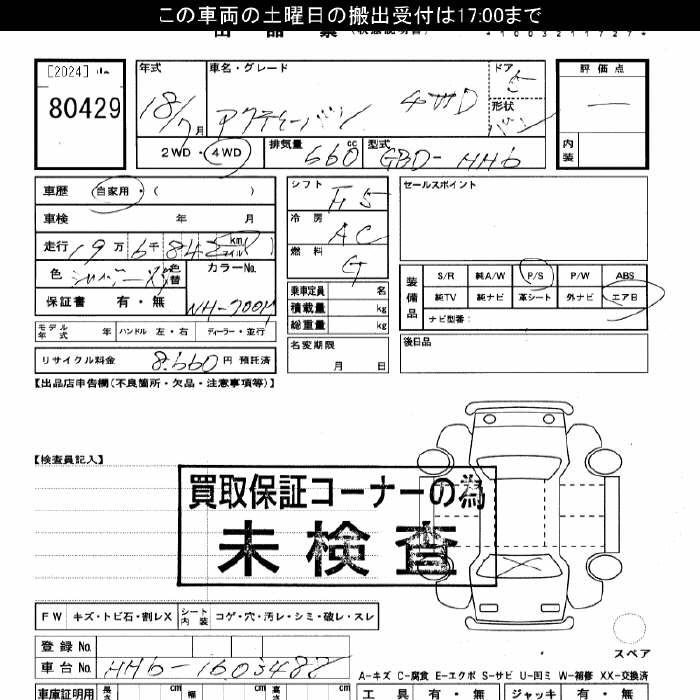 この車両の土曜日の搬出受付は17:00まで
[2024]
80429
年式
18/7月
車名・グレード
アクティーバン 4WD
ドア 5
形状 バン
評価点
—
内装
2WD・4WD
排気量 660 cc
型式 GBD-HH6
車歴 自家用・( )
車検 年 月
走行 19万6千842 km マイル
色 シルバーM 色替
カラーNo. NH-700M
保証書 有・無
モデル年式 年 ハンドル 左・右 ディーラー・並行
リサイクル料金 8,660円 預託済
シフト F5
冷房 AC
燃料 G
乗車定員 名
積載量 kg
総重量 kg
名変期限 月 日
セールスポイント
装備品
S/R 純A/W P/S P/W ABS
純TV 純ナビ 革シート 外ナビ エアB
ナビ型番:
後日品
【出品店申告欄(不良箇所・欠品・注意事項等)】
【検査員記入】
買取保証コーナーの為
未検査
FW キズ・トビ石・割レX シート内装 コゲ・穴・汚レ・シミ・破レ・スレ
登録No.
車台No. HH6-1603487
スペア
A-キズ C-腐食 E-エクボ S-サビ U-凹ミ W-補修 XX-交換済
車庫証明用 長さ cm 幅 cm 高さ cm
工具 有・無 ジャッキ 有・無